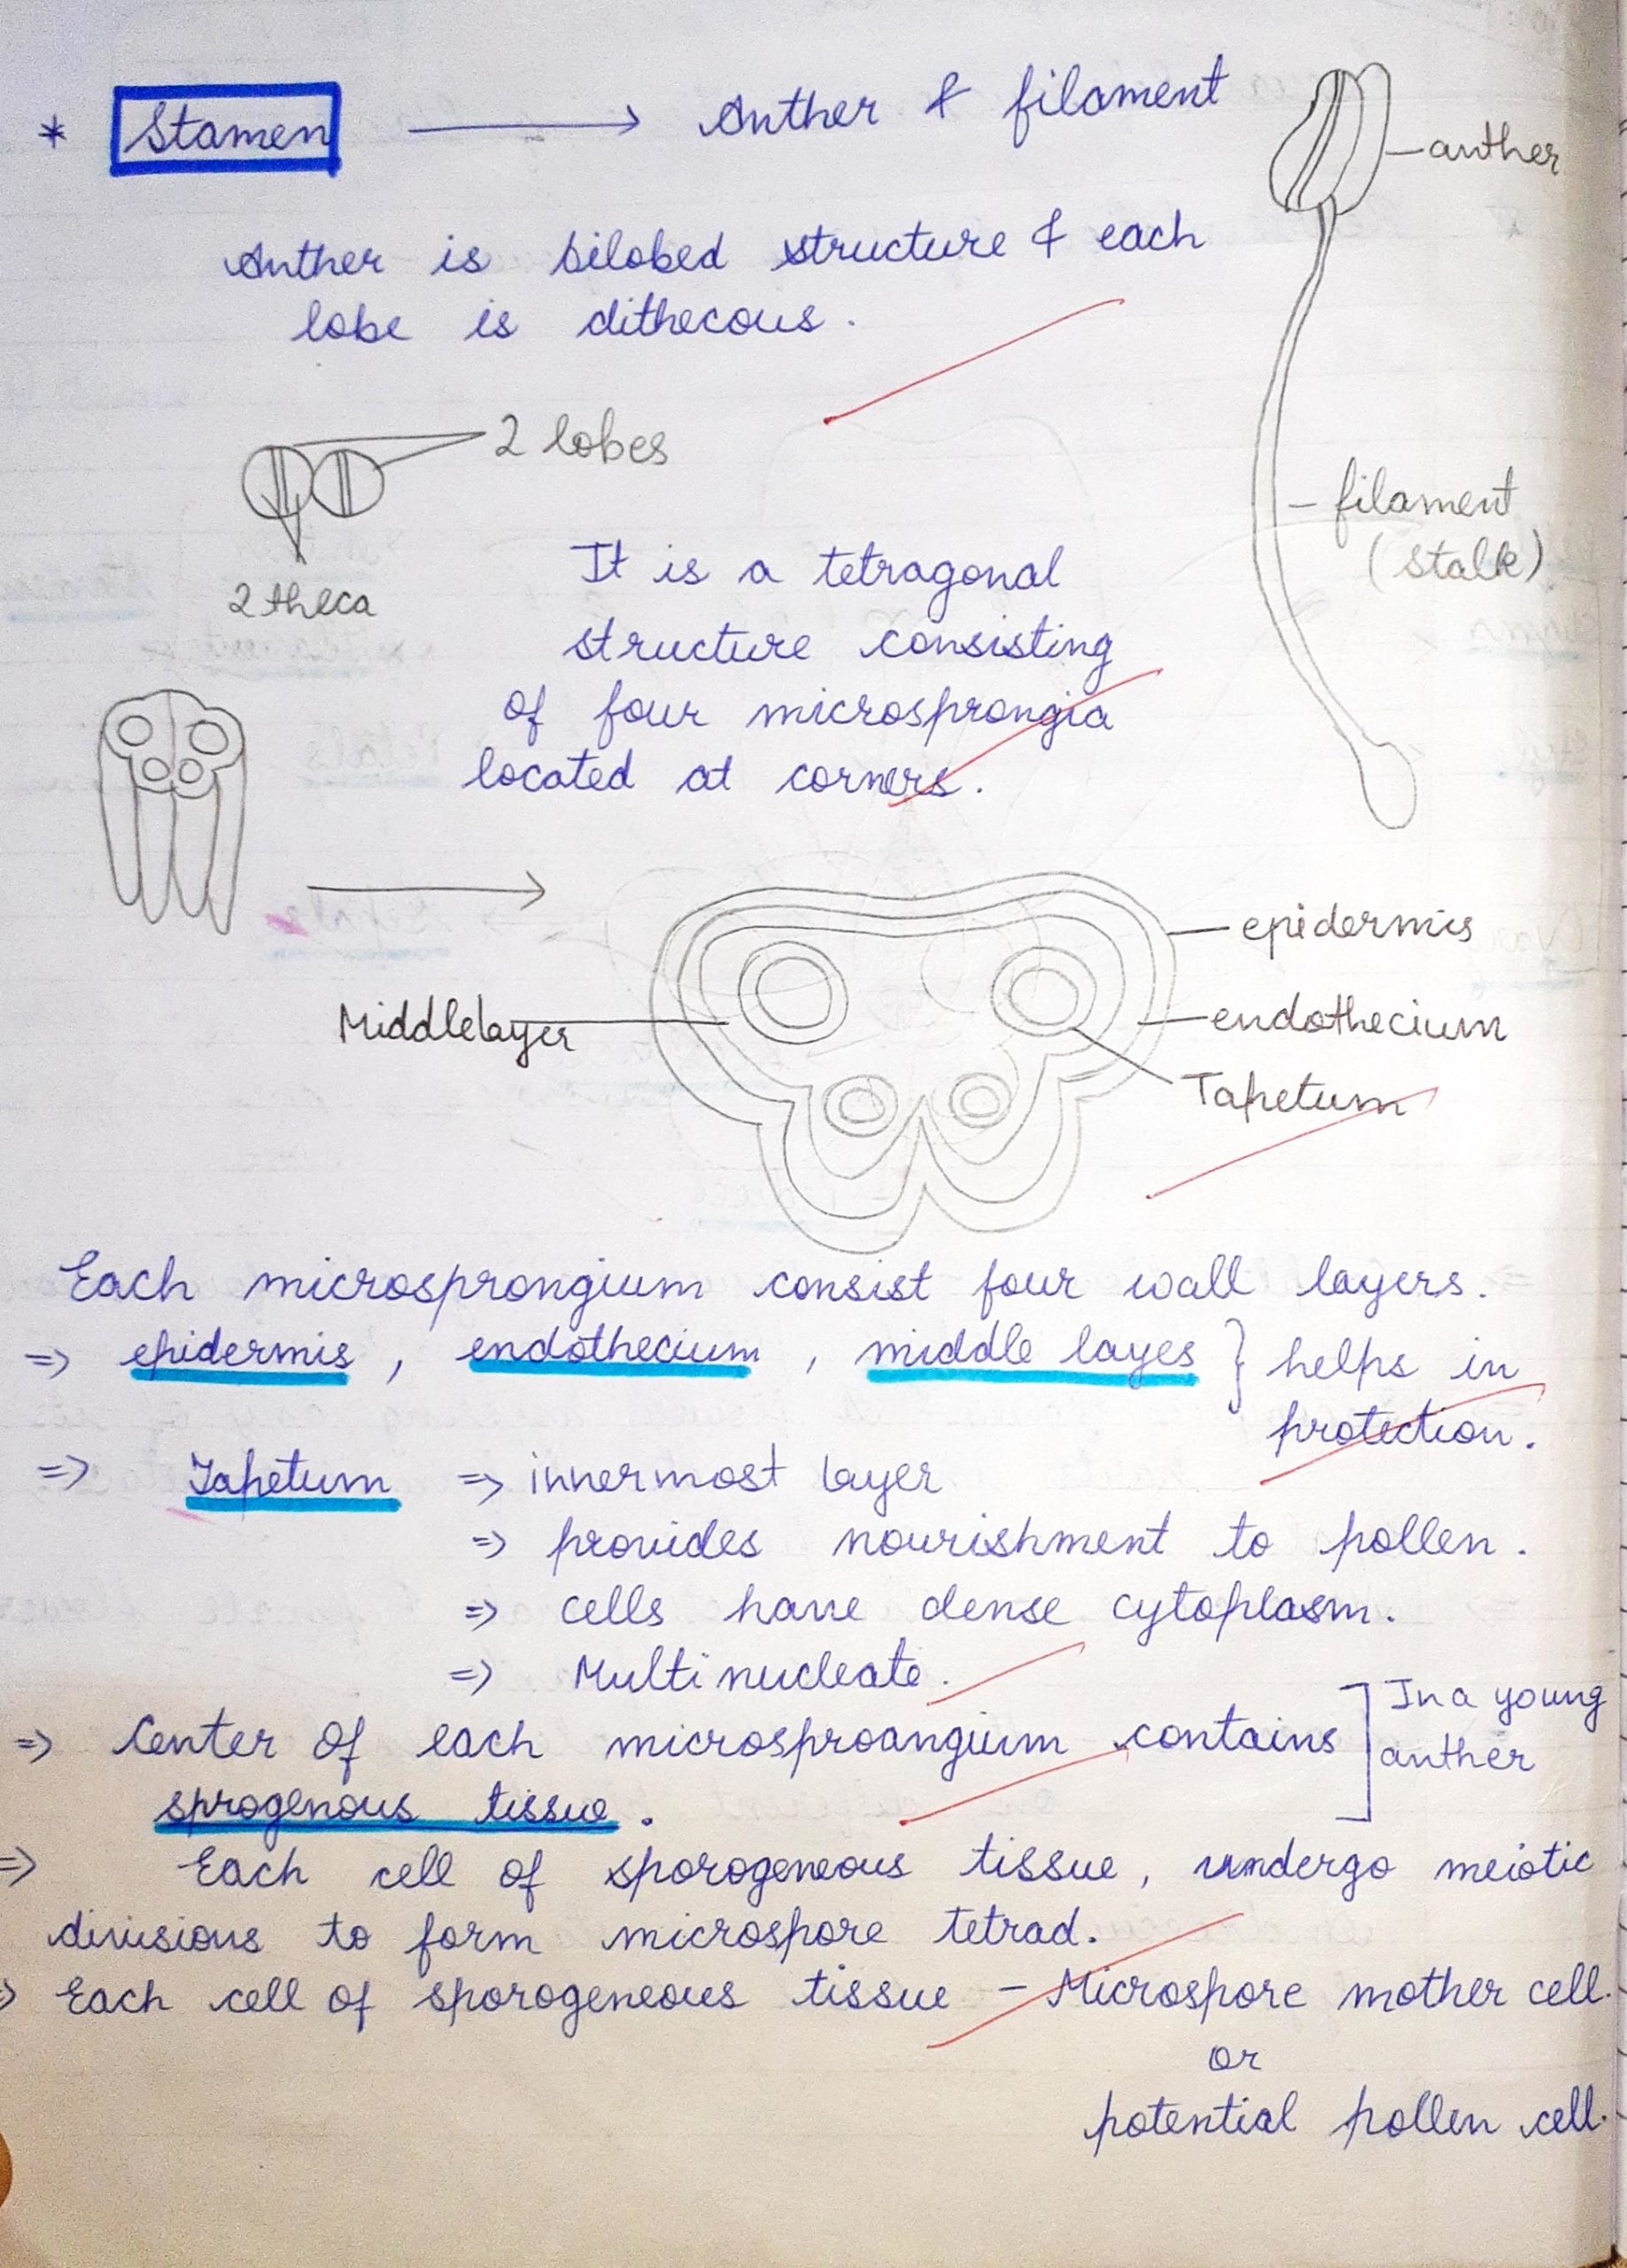 * Stamen → Anther & filament
anther
Anther is bilobed structure & each
lobe is dithecous.
2 lobes
2 theca
filament
(stalk)
It is a tetragonal
structure consisting
of four microsprongia
located at corners.
epidermis
Middlelayer
endothecium
Tapetum
Each microsprongium consist four wall layers.
⇒ epidermis, endothecium, middle layes } helps in
protection.
⇒ Tapetum ⇒ innermost layer
⇒ provides nourishment to pollen.
⇒ cells have dense cytoplasm.
⇒ Multinucleate.
⇒ Center of each microsproangium contains ] In a young
anther
sprogenous tissue.
⇒ Each cell of sporogeneous tissue, undergo meiotic
divisions to form microspore tetrad.
⇒ Each cell of sporogeneous tissue - Microspore mother cell.
or
potential pollen cell.